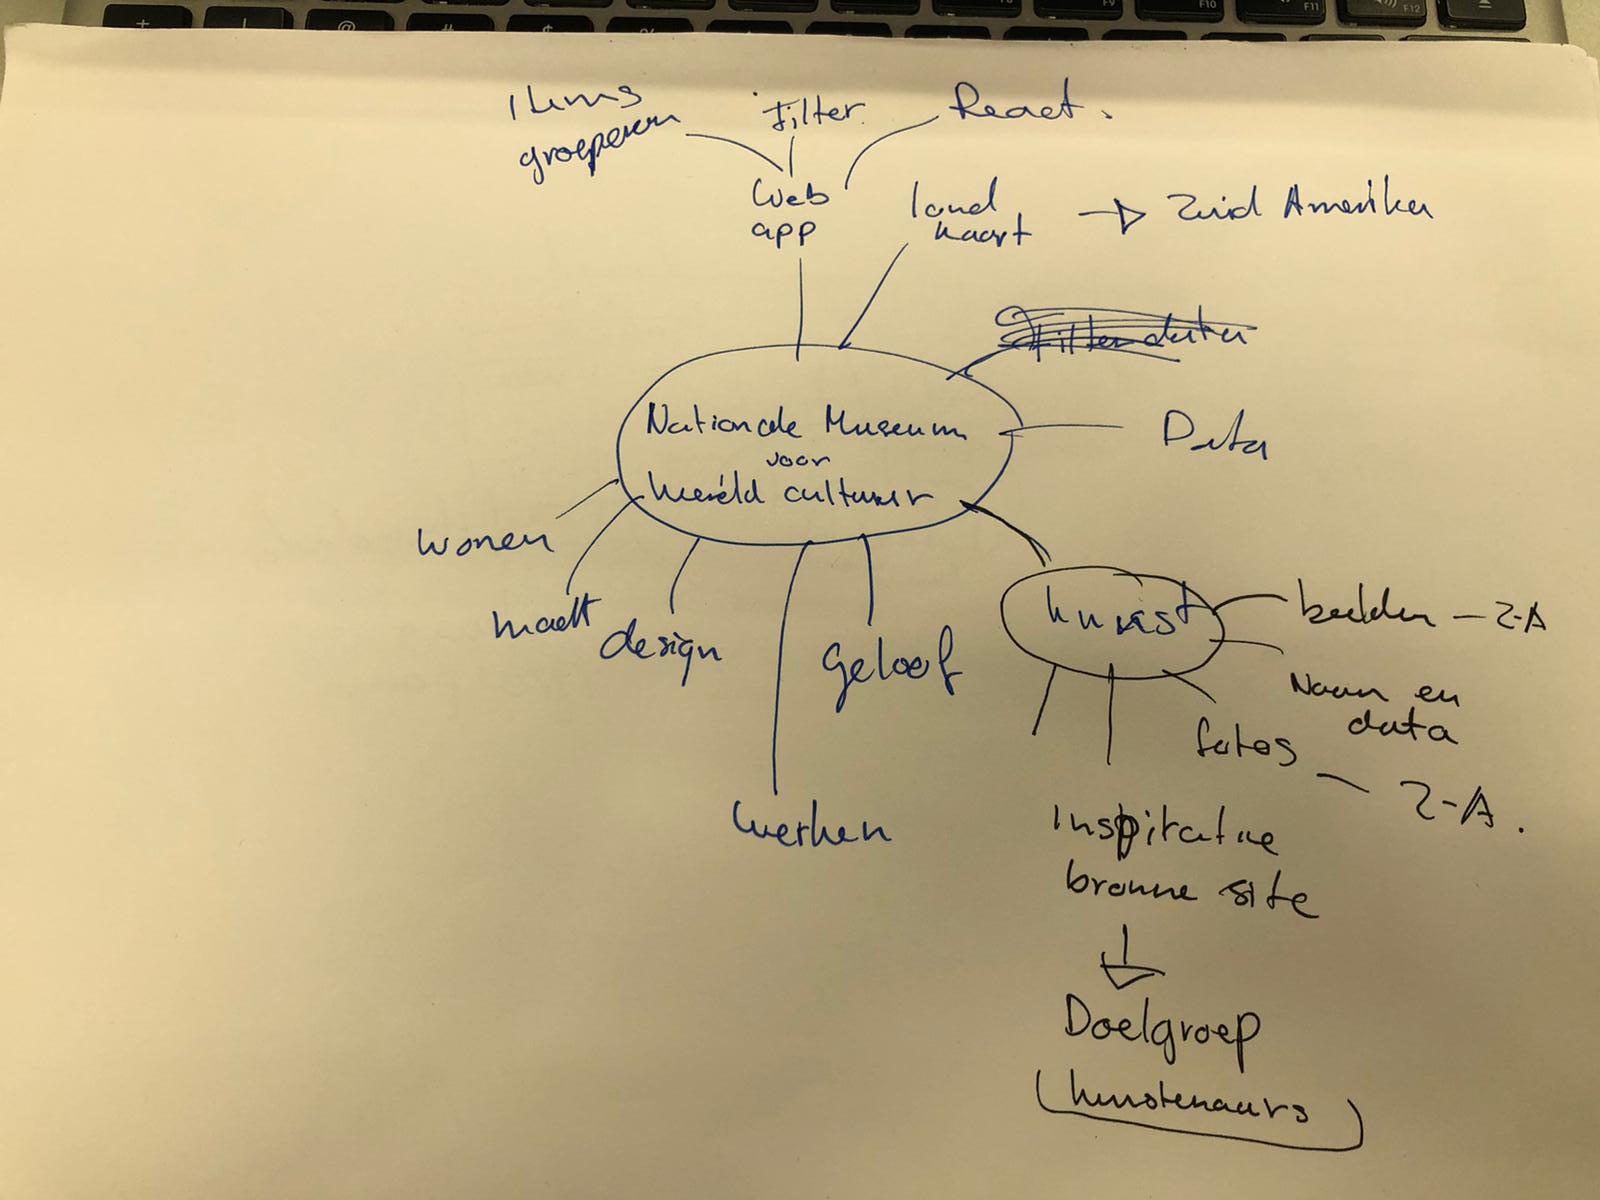 Items
groeperen
Filter
React.
Web
app
land
kaart
Zuid Amerika
Filter data
Data
Nationale Museum
voor
Wereld culturen
wonen
macht
design
Geloof
werken
kunst
beelden - Z-A
Naam en
data
fotos
- Z-A.
Inspiratie
bronne site
Doelgroep
kunstenaars